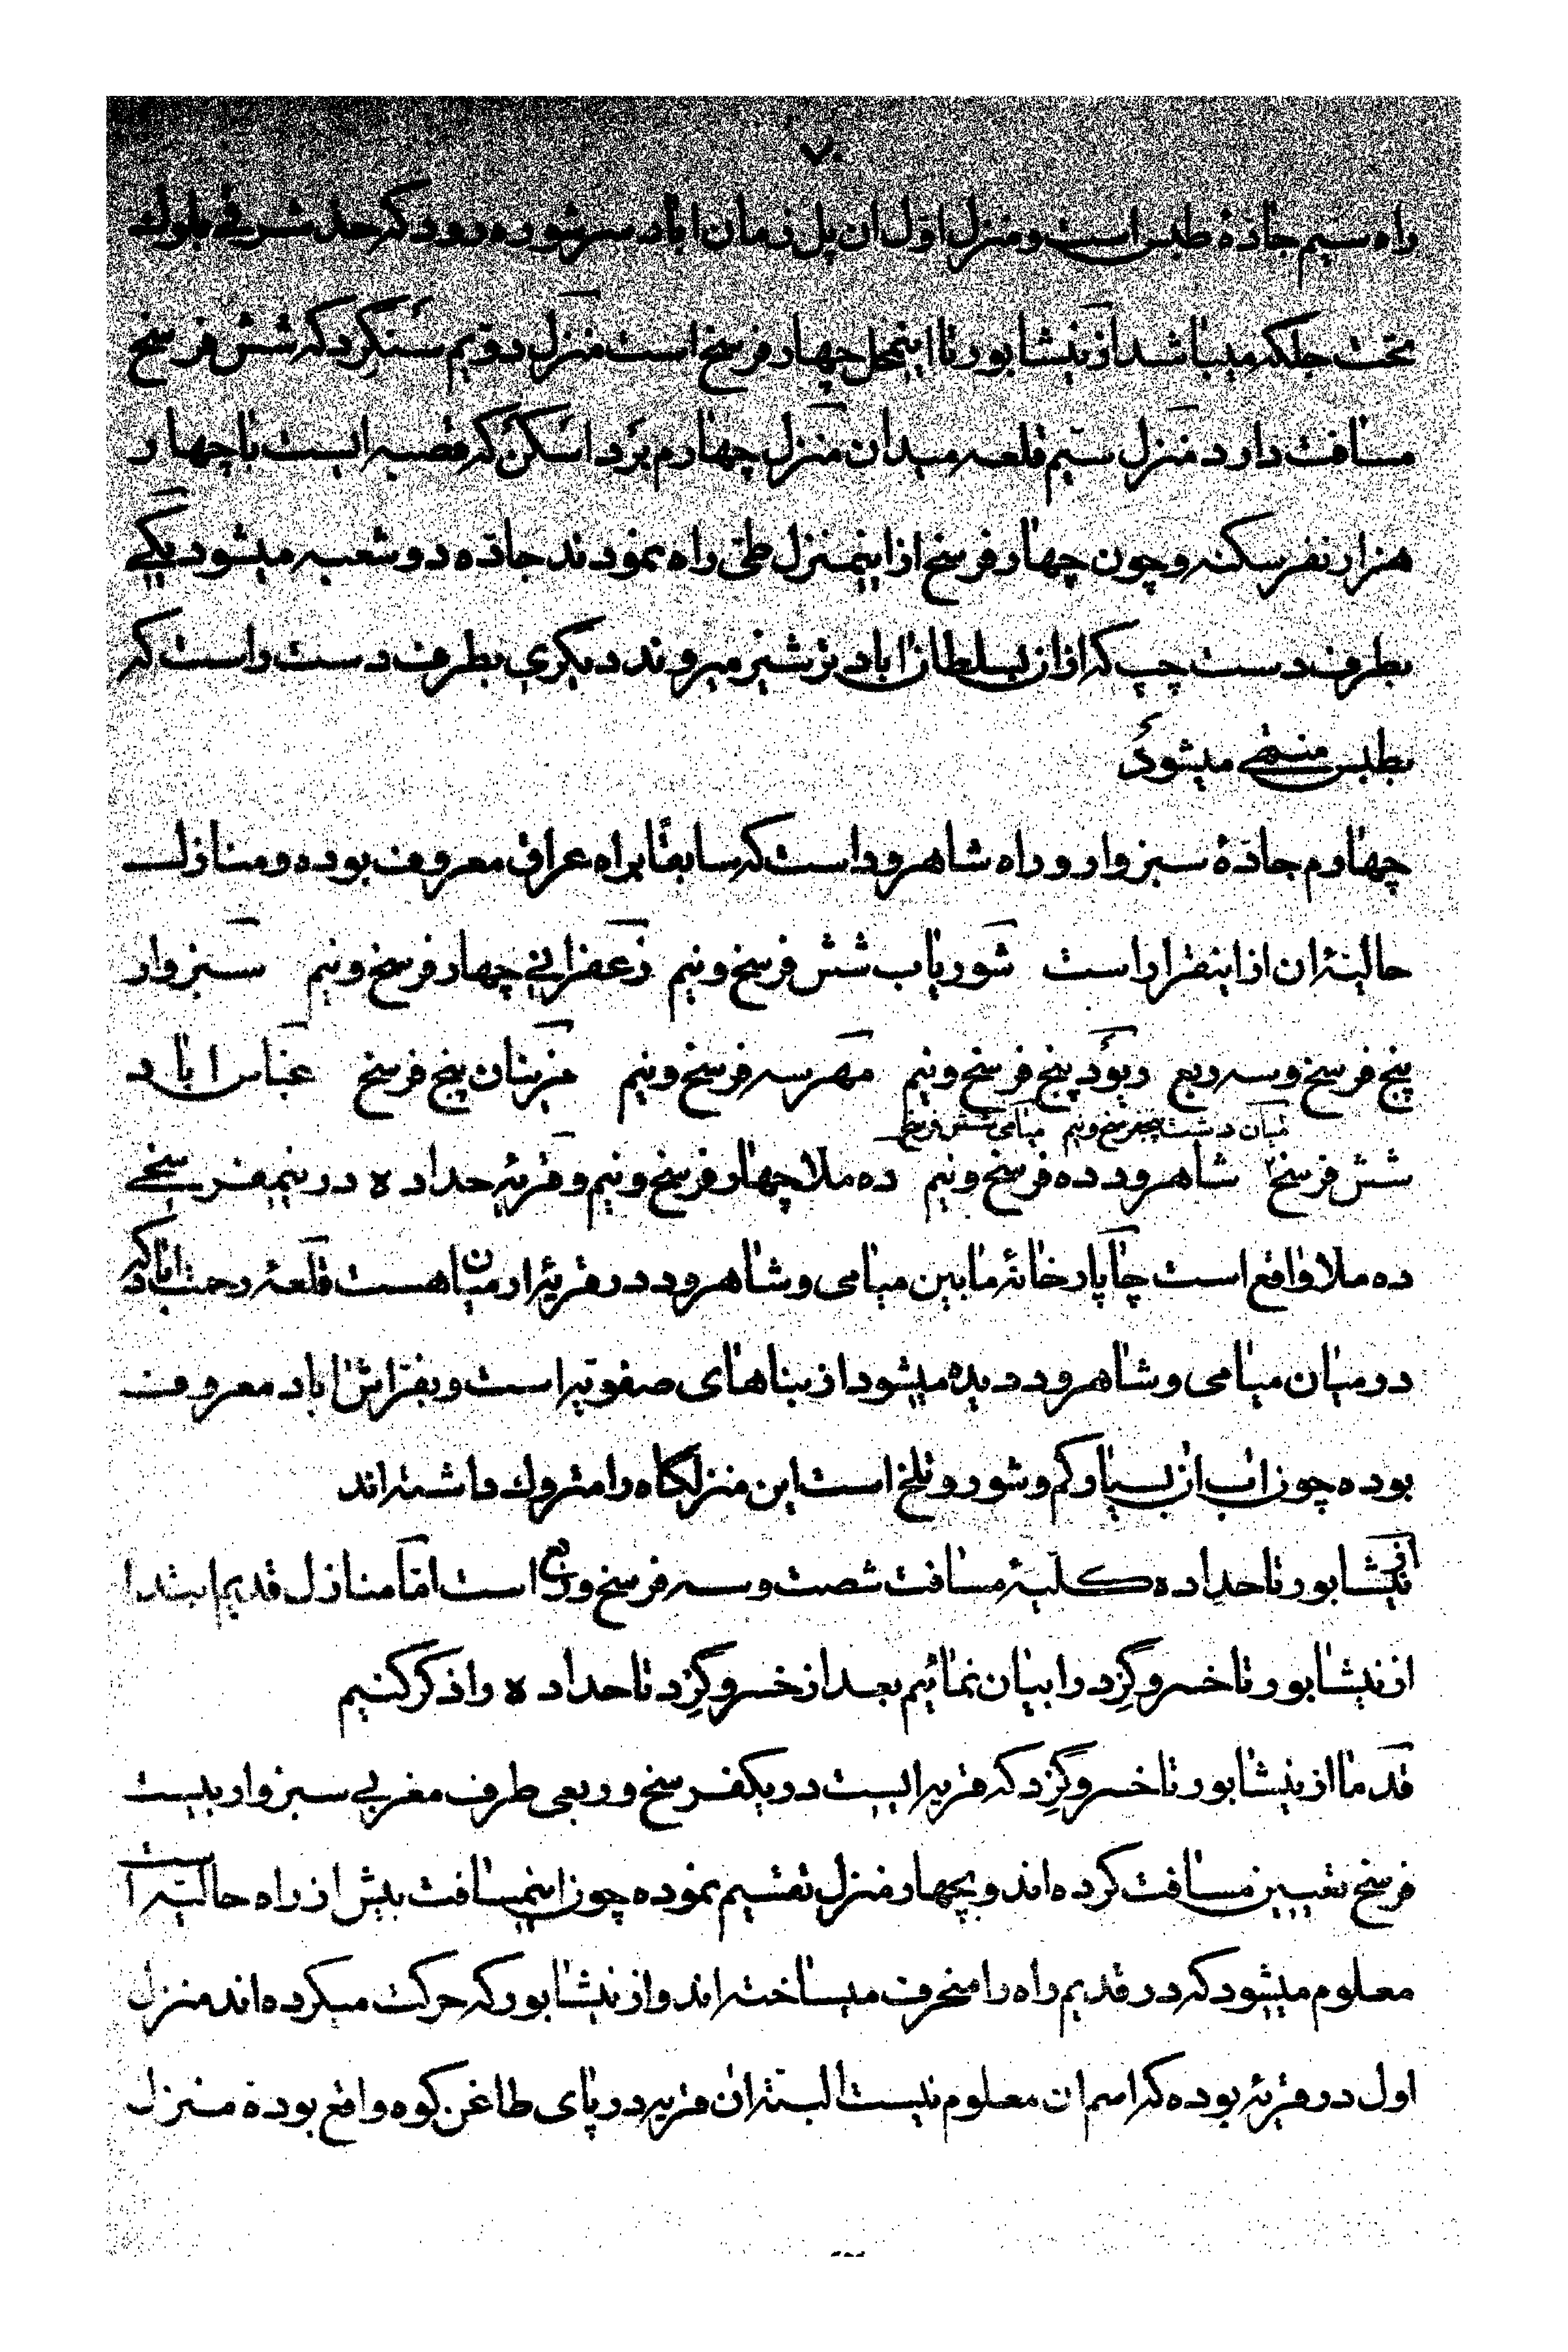 ۷
راه سیم جادهٔ طبس است و منزل اول ان پل زمان اباد سر شوره رود که حد شرقی بلوک
تحت جلکه میباشد از نیشابور تا اینمحل چهار فرسخ است منزل دویم سنگرد که شش فرسخ
مسافت دارد منزل سیم قلعه میدان منزل چهارم برداسکن که قصبه ایست با چهار
هزار نفر سکنه و چون چهار فرسخ از اینمنزل طی راه نمودند جاده دو شعبه میشود یکی
بطرف دست چپ که از ان بسلطان اباد ترشیز میروند دیکری بطرف دست راست که
بطبس منتهی میشود
چهارم جادهٔ سبزوار و راه شاهرود است که سابقاً براه عراق معروف بوده و منازل
حالیهٔ ان از اینقرار است شوریاب شش فرسخ و نیم زعفرانی چهار فرسخ و نیم سبزوار
پنج فرسخ و سه ربع ریود پنج فرسخ و نیم مهر سه فرسخ و نیم مزینان پنج فرسخ عباس اباد
میان دشت پنجفرسخ و نیم میامی شش فرسخ
شش فرسخ شاهرود ده فرسخ و نیم ده ملا چهار فرسخ و نیم و قریهٔ حداده در نیمفرسخی
ده ملا واقع است چاپار خانهٔ ما بین میامی و شاهرود در قریهٔ ارمیان هست قلعهٔ رحمت اباد که
در میان میامی و شاهرود دیده میشود از بناهای صفویه است و بقزلش اباد معروف
بوده چون اب ان بسیار کم و شور و تلخ است این منزلگاه را متروک داشته اند
از نیشابور تا حداده کلیهٔ مسافت شصت و سه فرسخ و ربع است اما منازل قدیم ابتدا
از نیشابور تا خسروگرد را بیان نمائیم بعد از خسروگرد تا حداده را ذکر کنیم
قدما از نیشابور تا خسروگرد که قریه ایست در یکفرسخ و ربعی طرف مغربی سبزوار بیست
فرسخ تعیین مسافت کرده اند و بچهار منزل تقسیم نموده چون اینمسافت بیش از راه حالیه است
معلوم میشود که در قدیم راه را منحرف میساخته اند و از نیشابور که حرکت میکرده اند منزل
اول در قریهٔ بوده که اسم ان معلوم نیست البته ان قریه در پای طاغن کوه واقع بوده منزل